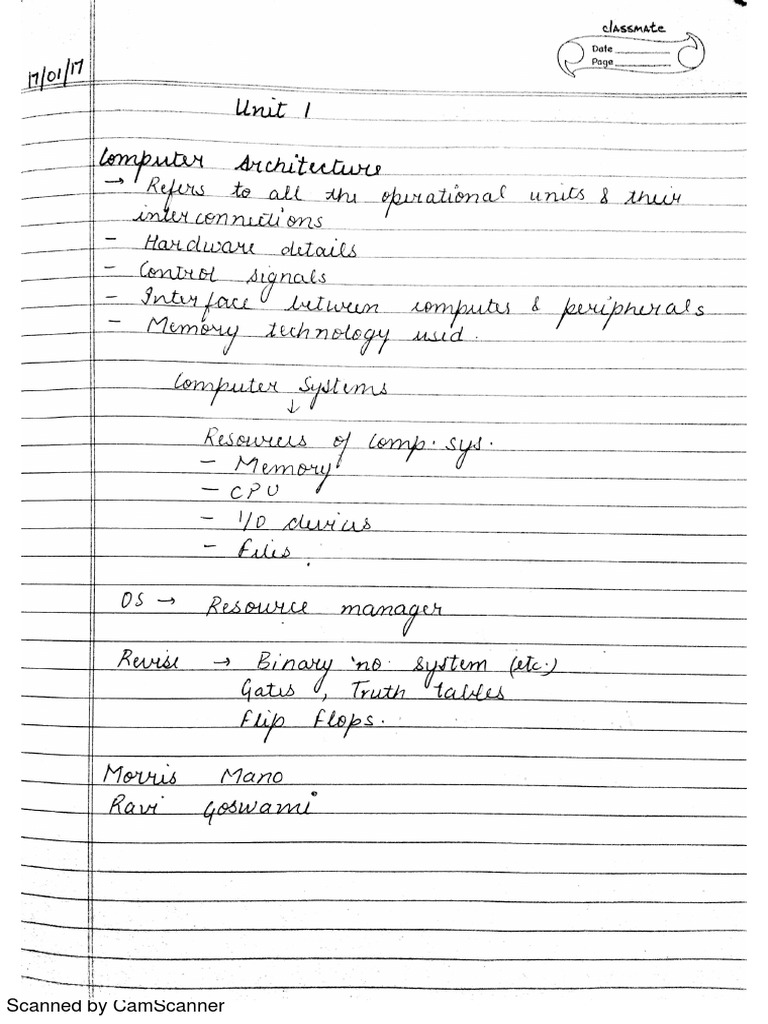 classmate
Date
Page
17/01/17
Unit 1
Computer Architecture
→ Refers to all the operational units & their
interconnections
- Hardware details
- Control signals
- Interface between computer & peripherals
- Memory technology used.
Computer Systems
↓
Resources of comp. sys.
- Memory
- CPU
- I/O devices
- Files.
OS → Resource manager
Revise → Binary no. system (etc.)
Gates, Truth tables
Flip Flops.
Morris Mano
Ravi Goswami
Scanned by CamScanner